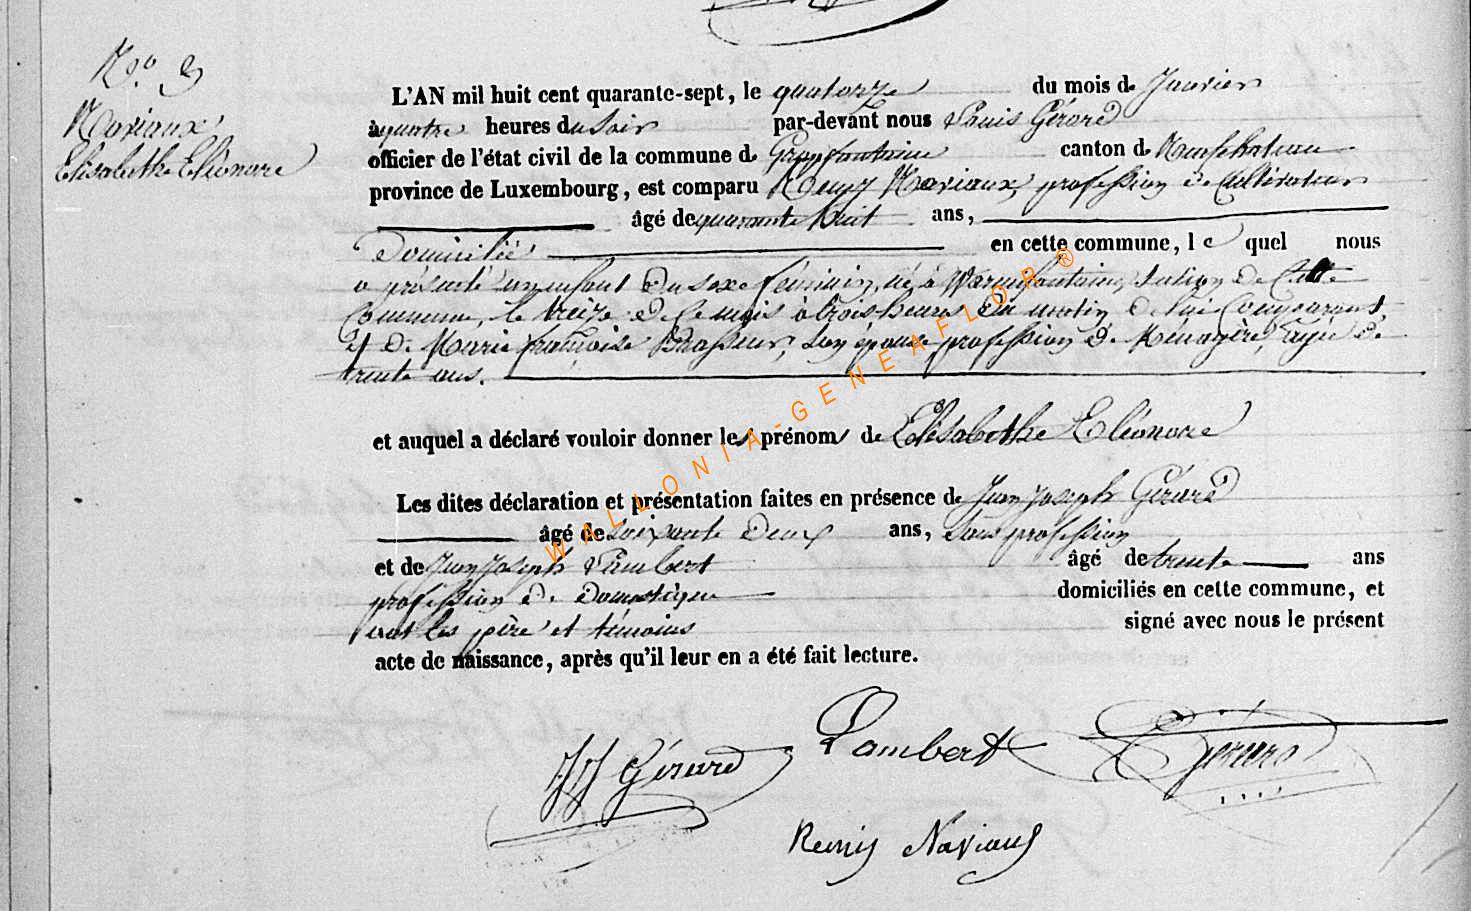 N.º 3
Naviaux
Elisabethe Eléonore
L'AN mil huit cent quarante-sept, le quatorze du mois de Janvier
à quatre heures du Soir par-devant nous Louis Gérard
officier de l'état civil de la commune de Grapfontaine canton de Neufchateau
province de Luxembourg, est comparu Remy Naviaux, profession de Cultivateur
âgé de quarante huit ans,
Domicilié en cette commune, le quel nous
a présenté un enfant du sexe féminin, né à Warmifontaine, Section de Cette
Commune, le treize de ce mois à trois heures du matin de lui Comparant,
et de Marie françoise Brasseur, Son épouse profession de Ménagère, agée de
trente ans.
et auquel a déclaré vouloir donner les prénoms de Elisabethe Eléonore
Les dites déclaration et présentation faites en présence de Jean Joseph Gérard
âgé de soixante Deux ans, Sans profession
et de Jean Joseph Lambert âgé de trente ans
profession de Domestique domiciliés en cette commune, et
ont les père et témoins signé avec nous le présent
acte de naissance, après qu'il leur en a été fait lecture.
JJ Gérard Lambert Gérard
Remy Naviaux
WALLONIA-GENEAFLOR®